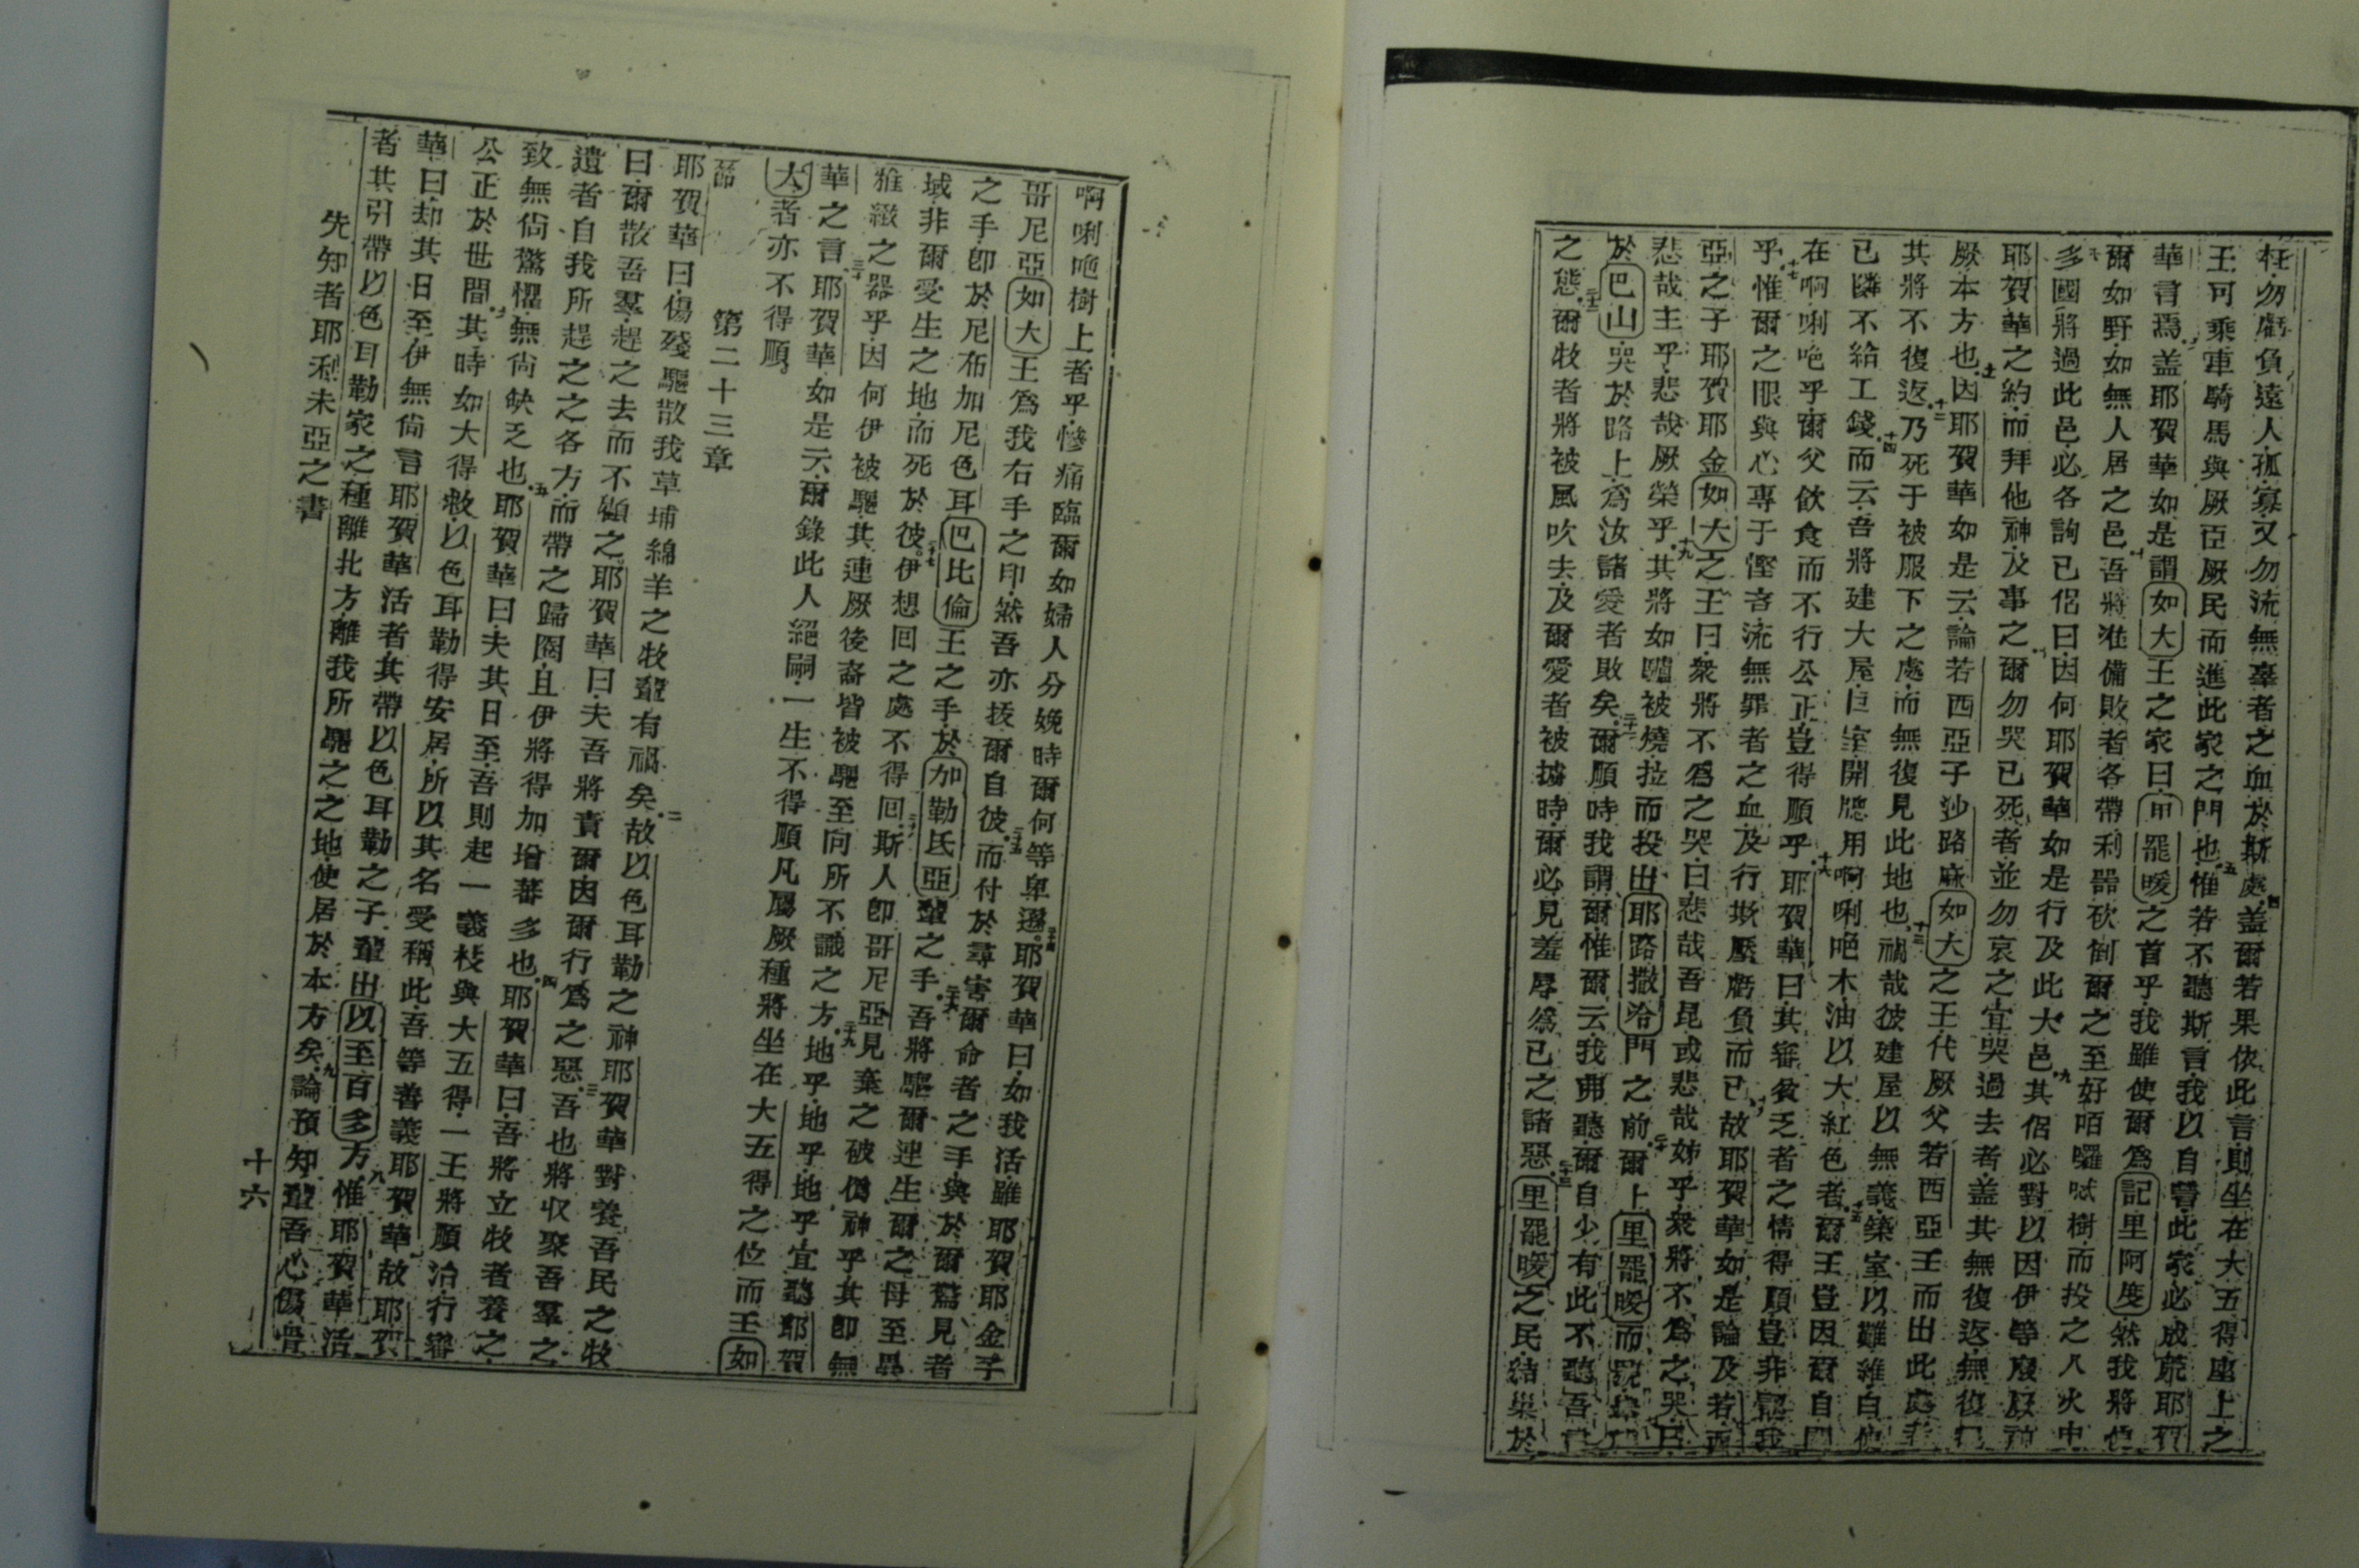 枉勿虧負遠人孤寡又勿流無辜者之血於斯處四蓋爾若果依此言則坐在大五得座上之
王可乘車騎馬與厥臣厥民而進此家之門也五惟若不聽斯言我以自誓此家必成荒耶賀
華言焉蓋耶賀華如是謂如大王之家曰罷暖之首乎我雖使爾為記里阿度然我將使
爾如野如無人居之邑吾將准備敗者各帶利器砍倒爾之至好啞囉㖠樹而投之入火中
多國將過此邑必各詢已侶曰因何耶賀華如是行及此大邑九其侶必對以因伊等廢厥神
耶賀華之約而拜他神及事之爾勿哭已死者並勿哀之宜哭過去者蓋其無復返無復見
厥本方也十一因耶賀華如是云論若西亞子沙路麻如大之王代厥父若西亞王而出此處者
其將不復返十二乃死于被服下之處而無復見此地也十三禍哉彼建屋以無義築室以難
已隣不給工錢十四而云吾將建大屋巨室開牕用啊唎吔木油以大紅色者十五爾王豈因爾自
在啊唎吔乎爾父飲食而不行公正豈得順乎十六耶賀華曰其審貧乏者之情得順豈非認我
乎十七惟爾之眼與心專于慳吝流無罪者之血及行欺壓虧負而已故耶賀華如是論及若西
亞之子耶賀耶金如大之王曰眾將不為之哭曰悲哉吾昆或悲哉姊乎眾將不為之哭曰
悲哉主乎悲哉厥榮乎十九其將如驢被燒拉而投出耶路撒冷門之前二十爾上里罷暖而
於巴山哭於路上為汝諸愛者敗矣二十一爾順時我謂爾惟爾云我弗聽爾自少有此不聽吾
之態二十二爾牧者將被風吹去及爾愛者被擄時爾必見羞辱為已之諸惡二十三里罷暖之民結巢於
啊唎吔樹上者乎慘痛臨爾如婦人分娩時爾何等卑遜二十四耶賀華曰如我活雖耶賀耶金子
哥尼亞如大王為我右手之印然吾亦拔爾自彼二十五而付於尋害爾命者之手與於爾驚見者
之手即於尼布加尼色耳巴比倫王之手於加勒氐亞輩之手二十六吾將驅爾連生爾之母至異
域非爾受生之地而死於彼二十七伊想回之處不得回二十八斯人即哥尼亞見棄之破偽神乎其即無
雅緻之器乎因何伊被驅其連厥後裔皆被驅至向所不識之方二十九地乎地乎地乎宜聽耶賀
華之言三十耶賀華如是云爾錄此人絕嗣一生不得順凡屬厥種將坐在大五得之位而王如
大者亦不得順
節 第二十三章
耶賀華曰傷殘驅散我草埔綿羊之牧輩有禍矣二故以色耳勒之神耶賀華對養吾民之牧
曰爾散吾羣趕之去而不顧之耶賀華曰夫吾將責爾因爾行為之惡三吾也將收聚吾羣之
遺者自我所趕之之各方而帶之歸圈且伊將得加增蕃多也四耶賀華曰吾將立牧者養之
致無尚驚懼無尚缺乏也五耶賀華曰夫其日至吾則起一義枝與大五得一王將順治行審
公正於世間六其時如大得救以色耳勒得安居所以其名受稱此吾等善義耶賀華故耶賀
華曰却其日至伊無尚言耶賀華活者其帶以色耳勒之子輩出以至百多方八惟耶賀華活
者其引帶以色耳勒家之種離北方離我所驅之之地使居於本方矣九論預知輩吾心傷骨
先知者耶利未亞之書 十六